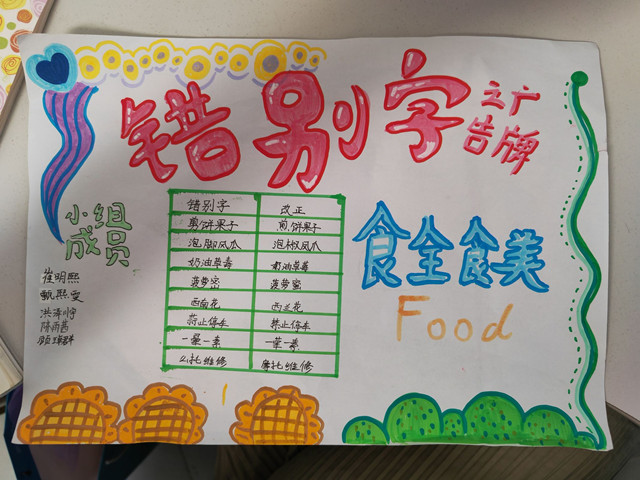 错别字
之广
告牌
小组
成员
崔明熙
甄熙雯
错别字 改正
剪饼果子 煎饼果子
泡脚凤爪 泡椒凤爪
奶油草毒 奶油草莓
菠萝密 菠萝蜜
西南花 西兰花
荷止停车 禁止停车
一晕一素 一荤一素
么托维修 摩托维修
食全食美
Food